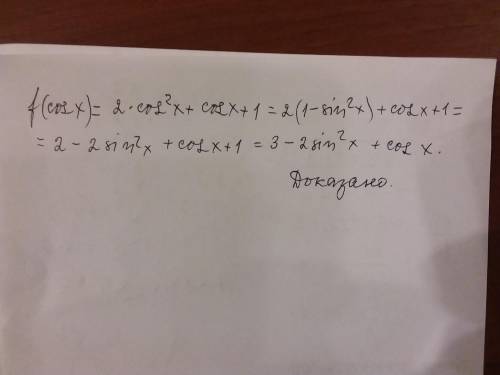 f(cos x) = 2·cos²x + cos x + 1 = 2(1 - sin²x) + cos x + 1 =
= 2 - 2 sin²x + cos x + 1 = 3 - 2 sin²x + cos x.
Доказано.